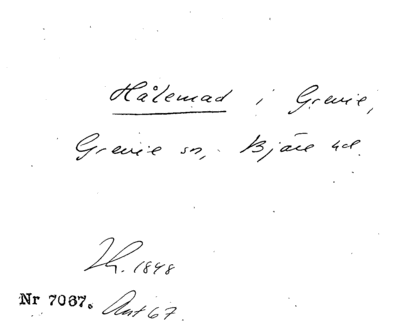 Hålemad i Grevie,
Grevie sn, Bjäre hd.
Th. 1848
Nr 7067. Ant 67.